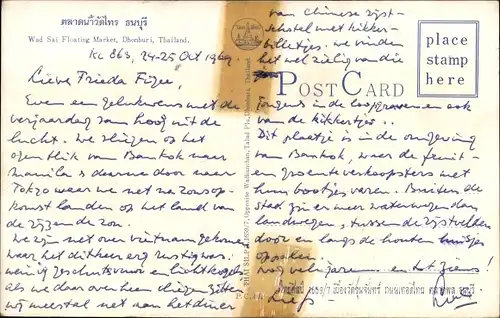 ตลาดน้ำวัดไทร ธนบุรี
Wad Sai Floating Market, Dhonburi, Thailand.
KL 863, 24-25 Oct 1969
Lieve Frieda
Even een gelukwens met de
verjaardag van hoog uit de
lucht. We vliegen op het
ogenblik van Bankok naar
Manila & daarna door naar
Tokyo waar we net na zonsop-
komst landen op het land van
de rijzende zon.
We zijn net over Vietnam gekomen
waar het ditkeer erg rustig was.
weinig geschutsvuur en lichtkogels
als we daar over heen vliegen zitten
wij meestal net aan het diner
van Chinese rijst-
schotel met kikker-
billetjes. we vinden
het wel zielig van die
POST CARD
place
stamp
here
jongens in de loopgraven en ook
van de kikkertjes.
Dit plaatje is in de omgeving
van Bankok, waar de fruit-
en groente verkoopsters met
hun bootjes varen. Buiten de
stad zijn er meer waterwegen dan
landwegen, tussen de rijstvelden
door en langs de houten huisjes
op palen.
nog veel jaren en tot ziens!
Liefs